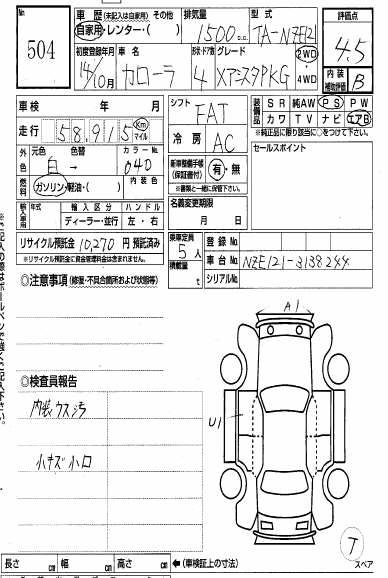 No 504
車歴 (未記入は自家用) その他
自家用・レンター・( )
排気量 1500 c.c.
型式 TA-NZE121
評価点 4.5
初度登録年月 14/10月
車名 カローラ
形状・ドア数 4
グレード XアシスタPKG
2WD ・ 4WD
内装補助評価 B
車検 年 月
シフト FAT
装備品 SR 純AW PS PW
カワ TV ナビ エアB
※純正品に限り該当に○をつけて下さい。
走行 58,915 Km マイル
冷房 AC
セールスポイント
外色 元色 白 → 色替
カラーNo. 040
燃料 ガソリン・軽油・( )
内装色
新車整備手帳(保証書付) 有・無
※書類と一緒に保管下さい。
輸入車用 年式 輸入区分 ハンドル
ディーラー・並行 左・右
名義変更期限 月 日
リサイクル預託金 10,270 円 預託済み
※リサイクル預託金に資金管理料金は含まれません。
乗車定員 5 人
積載量 t
登録No.
車台No. NZE121-3138244
シリアルNo.
◎注意事項 (修復・不具合箇所および状態等)
A1
◎検査員報告
内装ウス汚
U1
小キズ 小凹
T
スペア
長さ cm 幅 cm 高さ cm ←(車検証上の寸法)